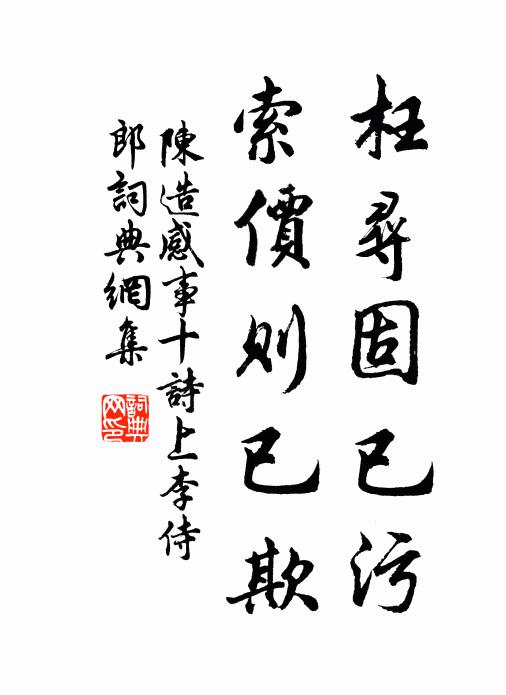 枉尋固已污
索價則已欺
陳造感事十詩上李侍
郎詞典網集
詞典
网印